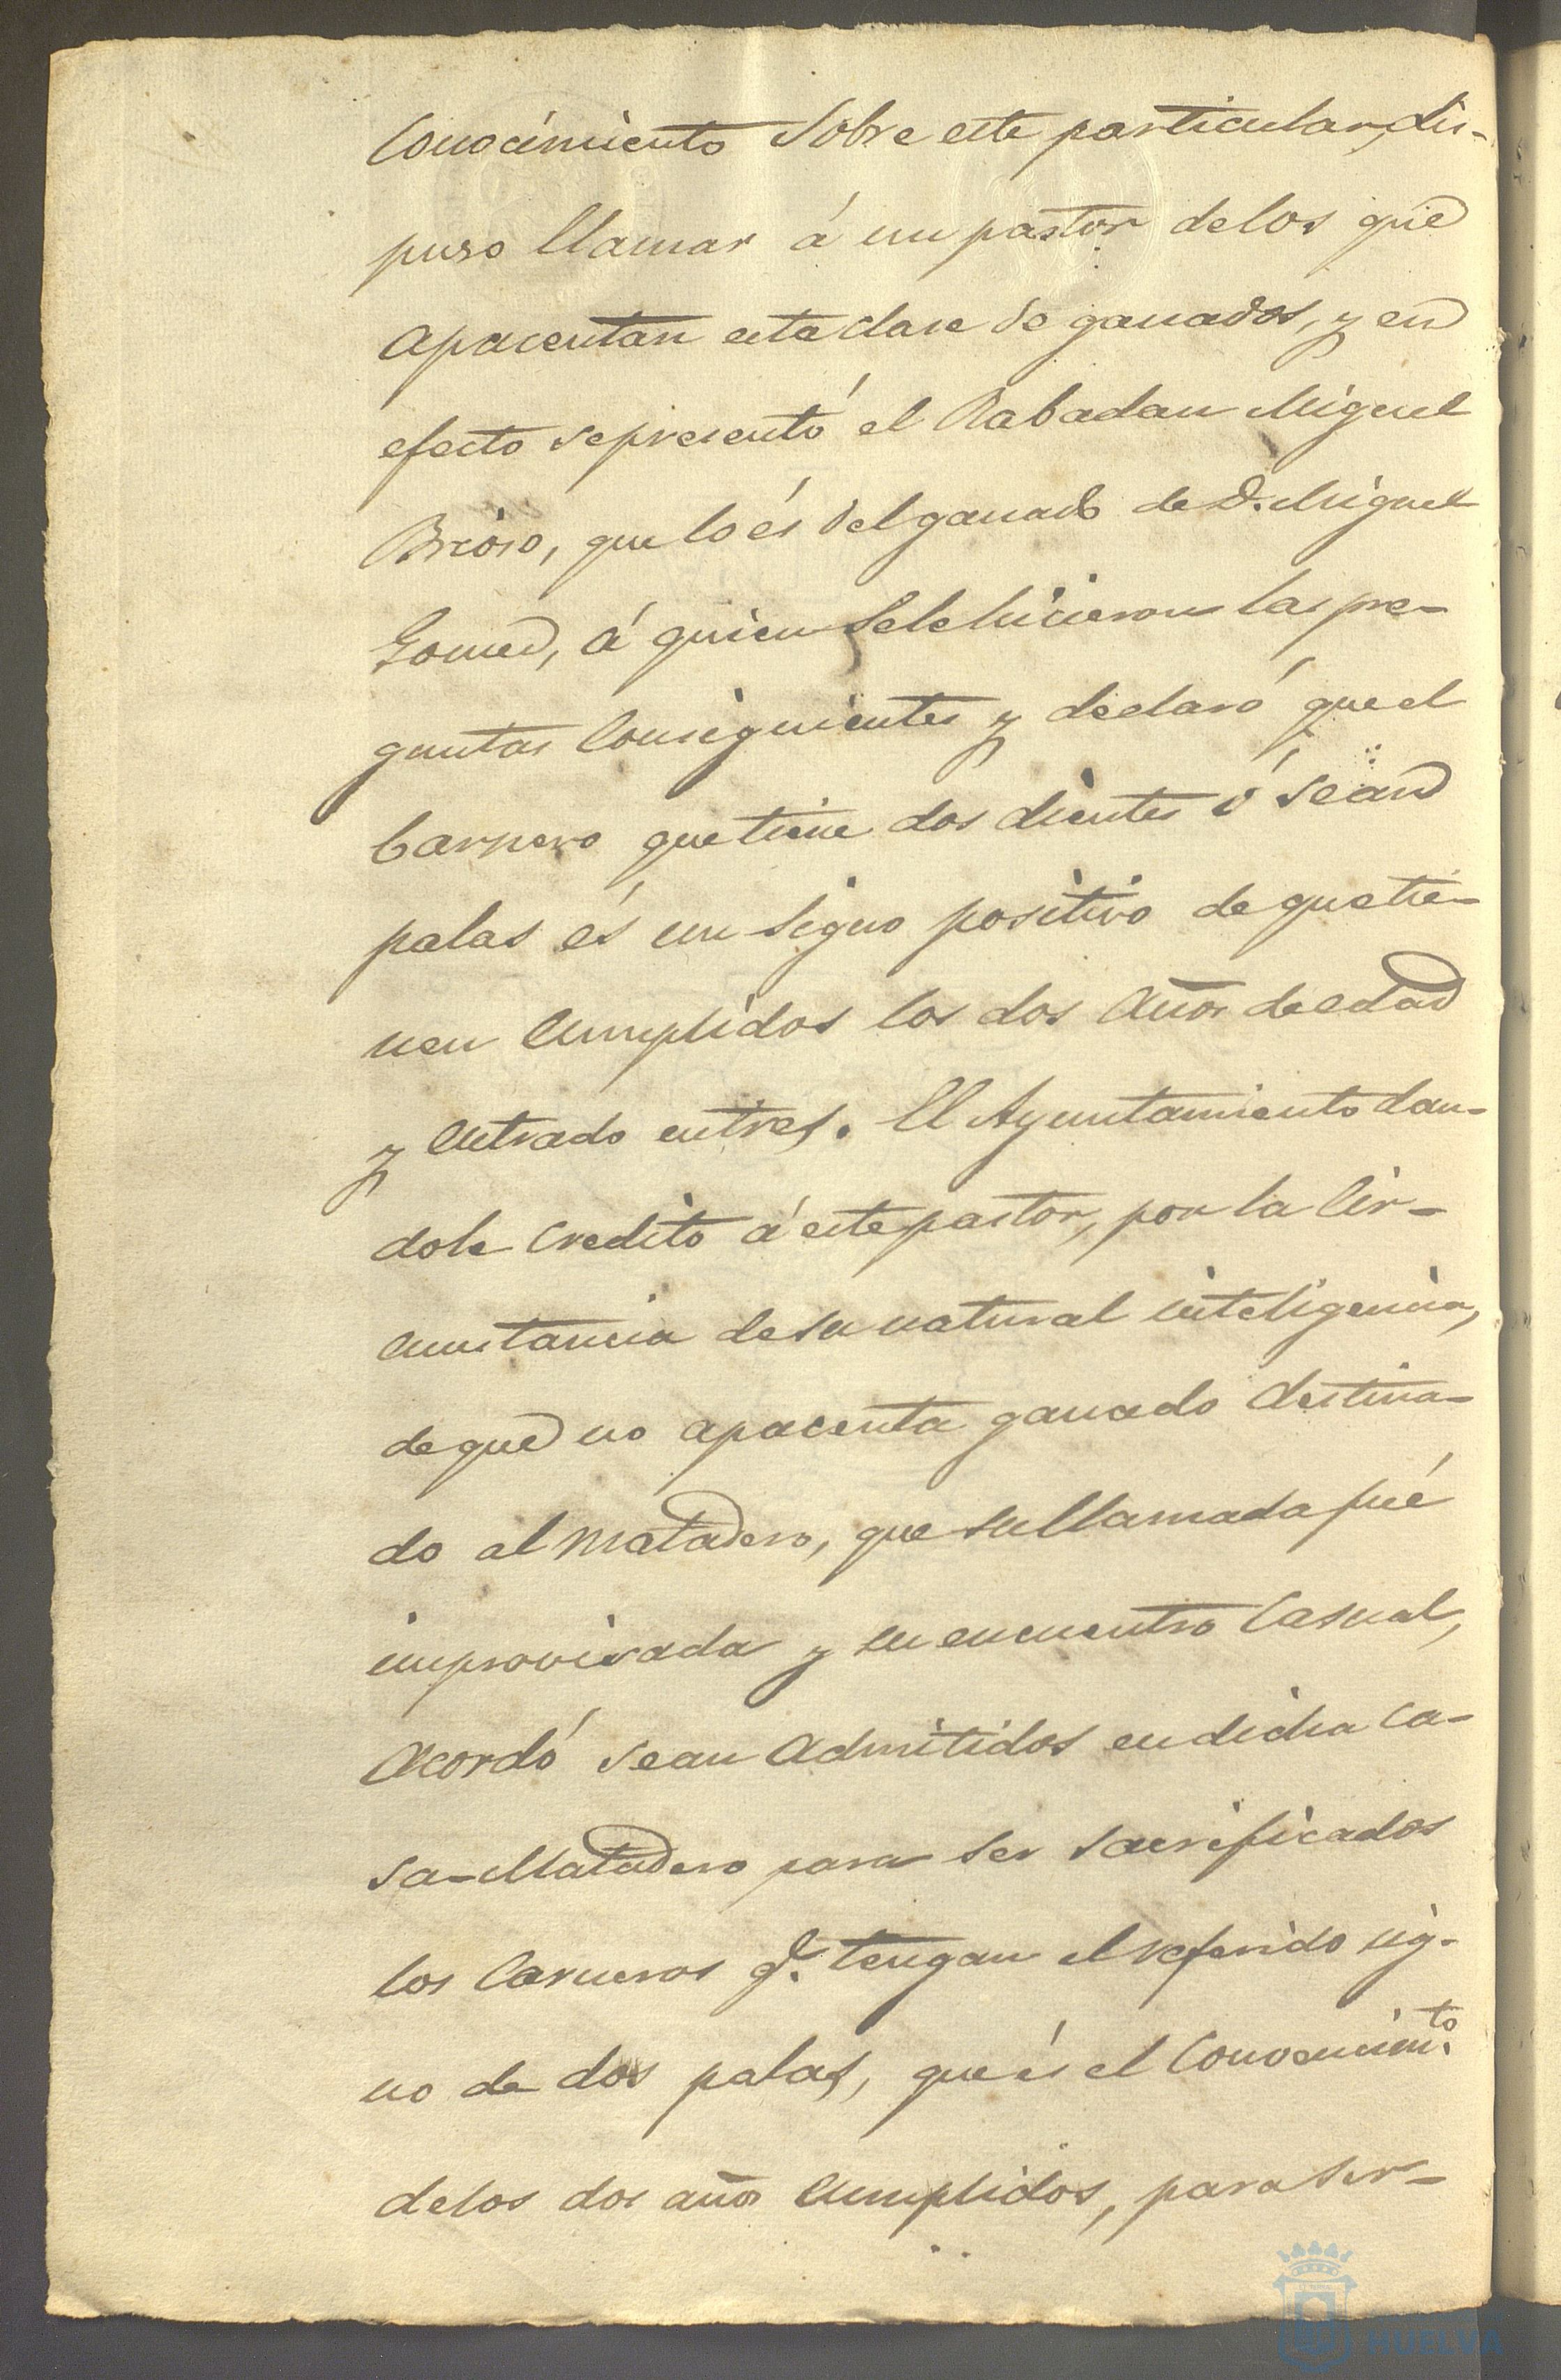 Conocimiento Sobre este particular, dis-
puso llamar á un pastor delos que
apacentan esta clase de ganados, y en
efecto sepresentó el Rabadan Miguel
Brioso, que lo és del ganado de D. Miguel
Gomez, á quien Sele hicieron las pre-
guntas Consiguientes y declaró que el
Carnero que tiene dos dientes ó sean
palas és un signo positivo de que tie-
nen Cumplidos los dos Años de edad
y Entrado entres. El Ayuntamiento dan-
dole Credito á este pastor, por la Cir-
cunstancia de su natural inteligencia,
de que no apacenta ganado destina-
do al Matadero, que su llamada fué
improvisada y su encuentro Casual,
Acordó sean Admitidos en dicha Ca-
sa-Matadero para ser sacrificados
los Carneros q.e tengan el referido sig-
no de dos palas, que és el Conocimien.to
delos dos años Cumplidos, para ser-
HUELVA